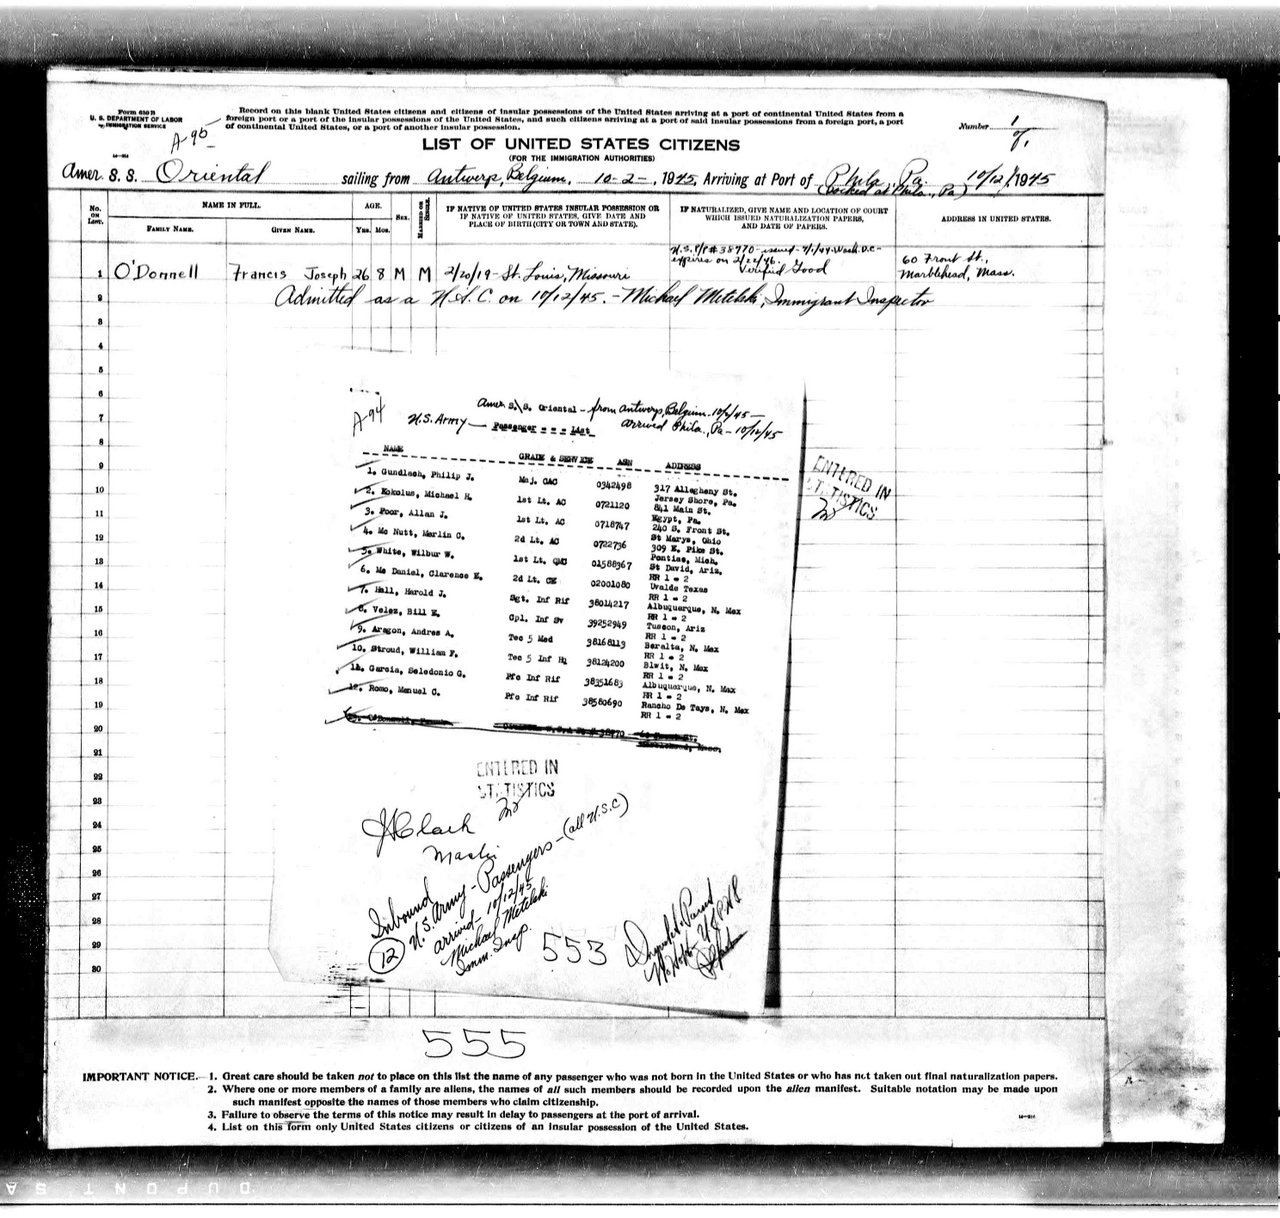 Form 630 B
U. S. DEPARTMENT OF LABOR
IMMIGRATION SERVICE
A-95
Record on this blank United States citizens and citizens of insular possessions of the United States arriving at a port of continental United States from a
foreign port or a port of the insular possessions of the United States, and such citizens arriving at a port of said insular possessions from a foreign port, a port
of continental United States, or a port of another insular possession.
Number 1
LIST OF UNITED STATES CITIZENS
(FOR THE IMMIGRATION AUTHORITIES)
Amer. S. S. Oriental sailing from Antwerp, Belgium, 10-2-, 1945, Arriving at Port of Phila., Pa. 10/12/, 1945
(Docked at Phila., Pa)
No. on List.
NAME IN FULL.
FAMILY NAME. GIVEN NAME.
AGE.
Yrs. Mos.
Sex.
MARRIED OR SINGLE.
IF NATIVE OF UNITED STATES INSULAR POSSESSION OR
IF NATIVE OF UNITED STATES, GIVE DATE AND
PLACE OF BIRTH (CITY OR TOWN AND STATE).
IF NATURALIZED, GIVE NAME AND LOCATION OF COURT
WHICH ISSUED NATURALIZATION PAPERS,
AND DATE OF PAPERS.
ADDRESS IN UNITED STATES.
U.S. P/P # 38770 - issued - 7/1/44 Wash. D.C -
expires on 2/22/46.
Verified Good
1 O'Donnell Francis Joseph 26 8 M M 2/20/19 - St. Louis, Missouri
60 Front St.,
Marblehead, Mass.
2 Admitted as a U.S.C. on 10/12/45. - Michael Metelski, Immigrant Inspector
3
4
5
6
7
8
9
10
11
12
13
14
15
16
17
18
19
20
21
22
23
24
25
26
27
28
29
30
A-94
Amer. S.S. Oriental - from Antwerp, Belgium - 10/2/45 -
U.S. Army - Passenger - - - List arrived Phila., Pa - 10/12/45
NAME GRADE & SERVICE ASN ADDRESS
1. Gundlach, Philip J. Maj. CAC 0342498 317 Allegheny St.
Jersey Shore, Pa.
2. Kokolus, Michael H. 1st Lt. AC 0721120 841 Main St.
Egypt, Pa.
3. Poor, Allan J. 1st Lt. AC 0718747 240 S. Front St.
St Marys, Ohio
4. Mc Nutt, Merlin C. 2d Lt. AC 0722736 309 E. Pike St.
Pontiac, Mich.
5. White, Wilbur W. 1st Lt. QMC 01588367 St David, Ariz.
RR 1 - 2
6. Mc Daniel, Clarence E. 2d Lt. CE 02001080 Uvalde Texas
RR 1 - 2
7. Hall, Harold J. Sgt. Inf Rif 38014217 Albuquerque, N. Mex
RR 1 - 2
8. Velez, Bill E. Cpl. Inf Sv 39252949 Tuscon, Ariz
RR 1 - 2
9. Aragon, Andres A. Tec 5 Med 38168113 Beralta, N. Mex
RR 1 - 2
10. Stroud, William F. Tec 5 Inf Hi 38124200 Blwit, N. Mex
RR 1 - 2
11. Garcia, Seledonio G. Pfc Inf Rif 38351683 Albuquerque, N. Mex
RR 1 - 2
12. Romo, Manuel C. Pfc Inf Rif 38580690 Rancho De Tays, N. Mex
RR 1 - 2
ENTERED IN
STATISTICS
ENTERED IN
STATISTICS
J Clark
Master
Inbound
12 U.S. Army - Passengers - (all U.S.C)
arrived - 10/12/45
Michael Metelski
Imm. Insp.
553
555
IMPORTANT NOTICE.—1. Great care should be taken not to place on this list the name of any passenger who was not born in the United States or who has not taken out final naturalization papers.
2. Where one or more members of a family are aliens, the names of all such members should be recorded upon the alien manifest. Suitable notation may be made upon
such manifest opposite the names of those members who claim citizenship.
3. Failure to observe the terms of this notice may result in delay to passengers at the port of arrival.
4. List on this form only United States citizens or citizens of an insular possession of the United States.
DUPONT SA